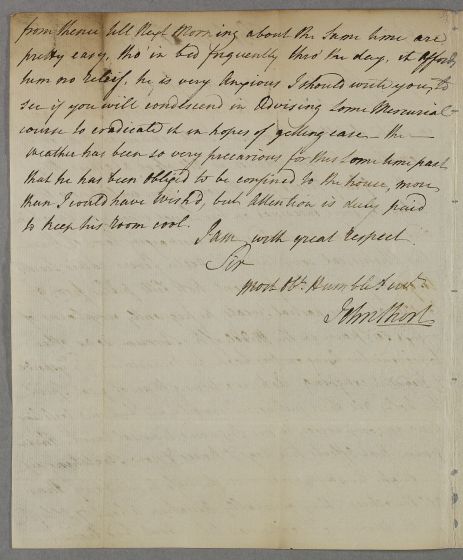 from thence till Next Morning about the same time are
pretty easy, tho' in bed frequently thro' the day, it affords
him no relief. he is very Anxious I should write you, to
see if you will condescend in Advising some Mercurial
course to eradicate it in hopes of getting ease — the
weather has been so very precarious for this some time past
that he has been Obliged to be confined to the house, more
than I could have Wish'd, but attention is duly paid
to keep his room cool.
I am with great respect
Sir
Most Obt. Humble Servt.
John Short